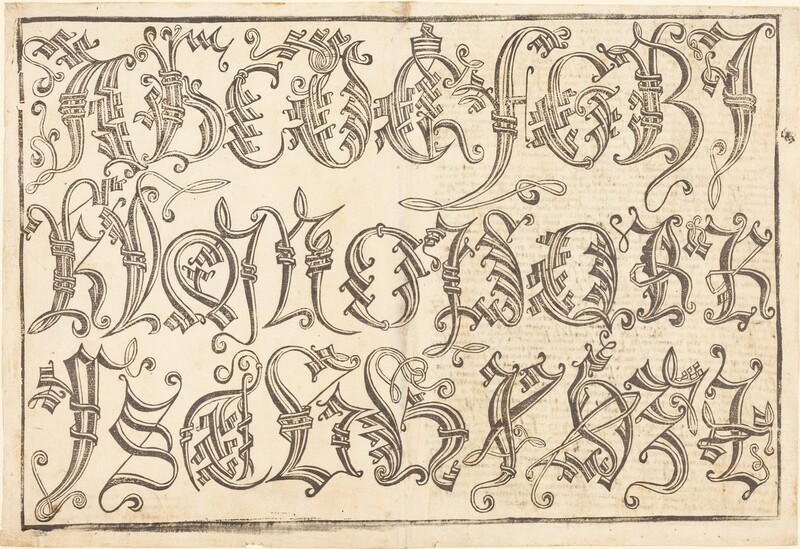 A B C D E F G H I
K L M N O P Q R R
S S T V X Y Z Z